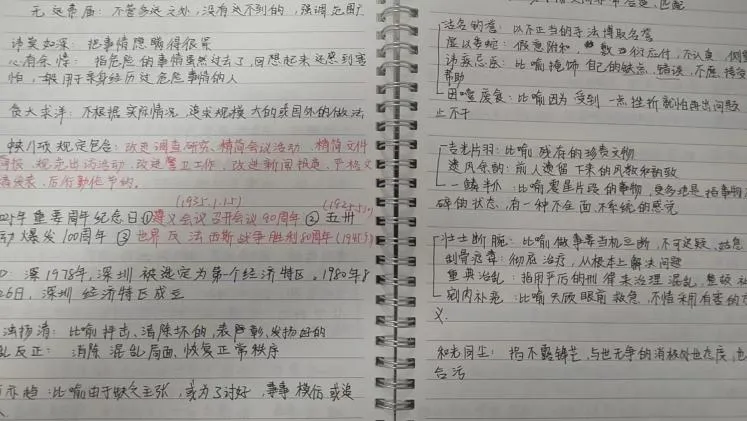 无远弗届：不管多远之处，没有达不到的，强调范围广
讳莫如深：把事情隐瞒得很紧
心有余悸：指危险的事情虽然过去了，回想起来还感到害
怕，一般用于亲身经历过危险事情的人
贪大求洋：不根据实际情况，追求规模大的或国外的做法
八项规定包含：改进调查研究、精简会议活动、精简文件
简报、规范出访活动、改进警卫工作、改进新闻报道、严格文
稿发表、厉行勤俭节约。
(1935.1.15) (1925.5.30)
年重要周年纪念日①遵义会议召开会议90周年 ② 五卅
动爆发100周年 ③ 世界反法西斯战争胜利80周年(1945.9
深1978年，深圳被选定为第一个经济特区。1980年8
26日，深圳经济特区成立
浊扬清：比喻抨击、清除坏的，表彰、发扬好的
乱反正：消除混乱局面，恢复正常秩序
亦趋：比喻由于缺乏主张，或为了讨好，事事模仿或追
沽名钓誉：以不正当的手法博取名誉
虚以委蛇：假意附和，敷衍应付，不认真
讳疾忌医：比喻掩饰自己的缺点、错误，不愿接受
帮助
因噎废食：比喻因为受到一点挫折就怕再出问题
止不干
吉光片羽：比喻残存的珍贵文物
遗风余韵：前人遗留下来的风教和韵致
一鳞半爪：比喻零星片段的事物，更多地是指事物
碎的状态，有一种不全面、不系统的感觉
壮士断腕：比喻做事要当机立断，不可迟疑、姑息
刮骨疗毒：彻底治疗，从根本上解决问题
重典治乱：指用严厉的刑律来治理混乱，整顿社
剜肉补疮：比喻只顾眼前救急，不惜采用有害的方
义.
和光同尘：指不露锋芒，与世无争的消极处世态度，也
合污